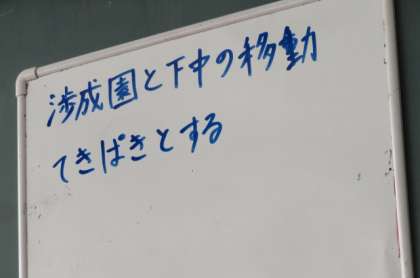 渉成園と下中の移動
てきぱきとする